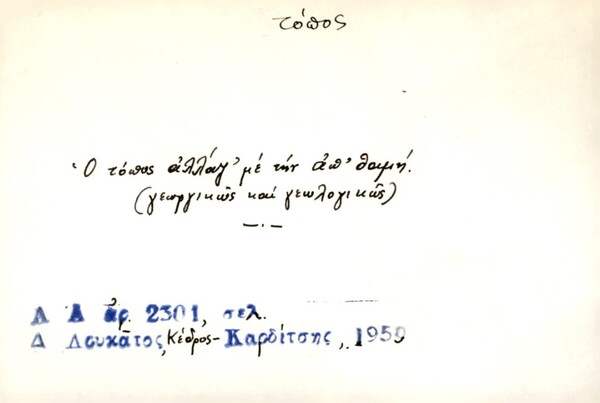 τόπος
Ὁ τόπος ἀλλάγ' μέ τήν ἀπ' θαμή.
(γεωργικῶς καί γεωλογικῶς)
Λ Α ἀρ. 2301, σελ.
Δ Λουκᾶτος, Κέδρος - Καρδίτσης, 1959